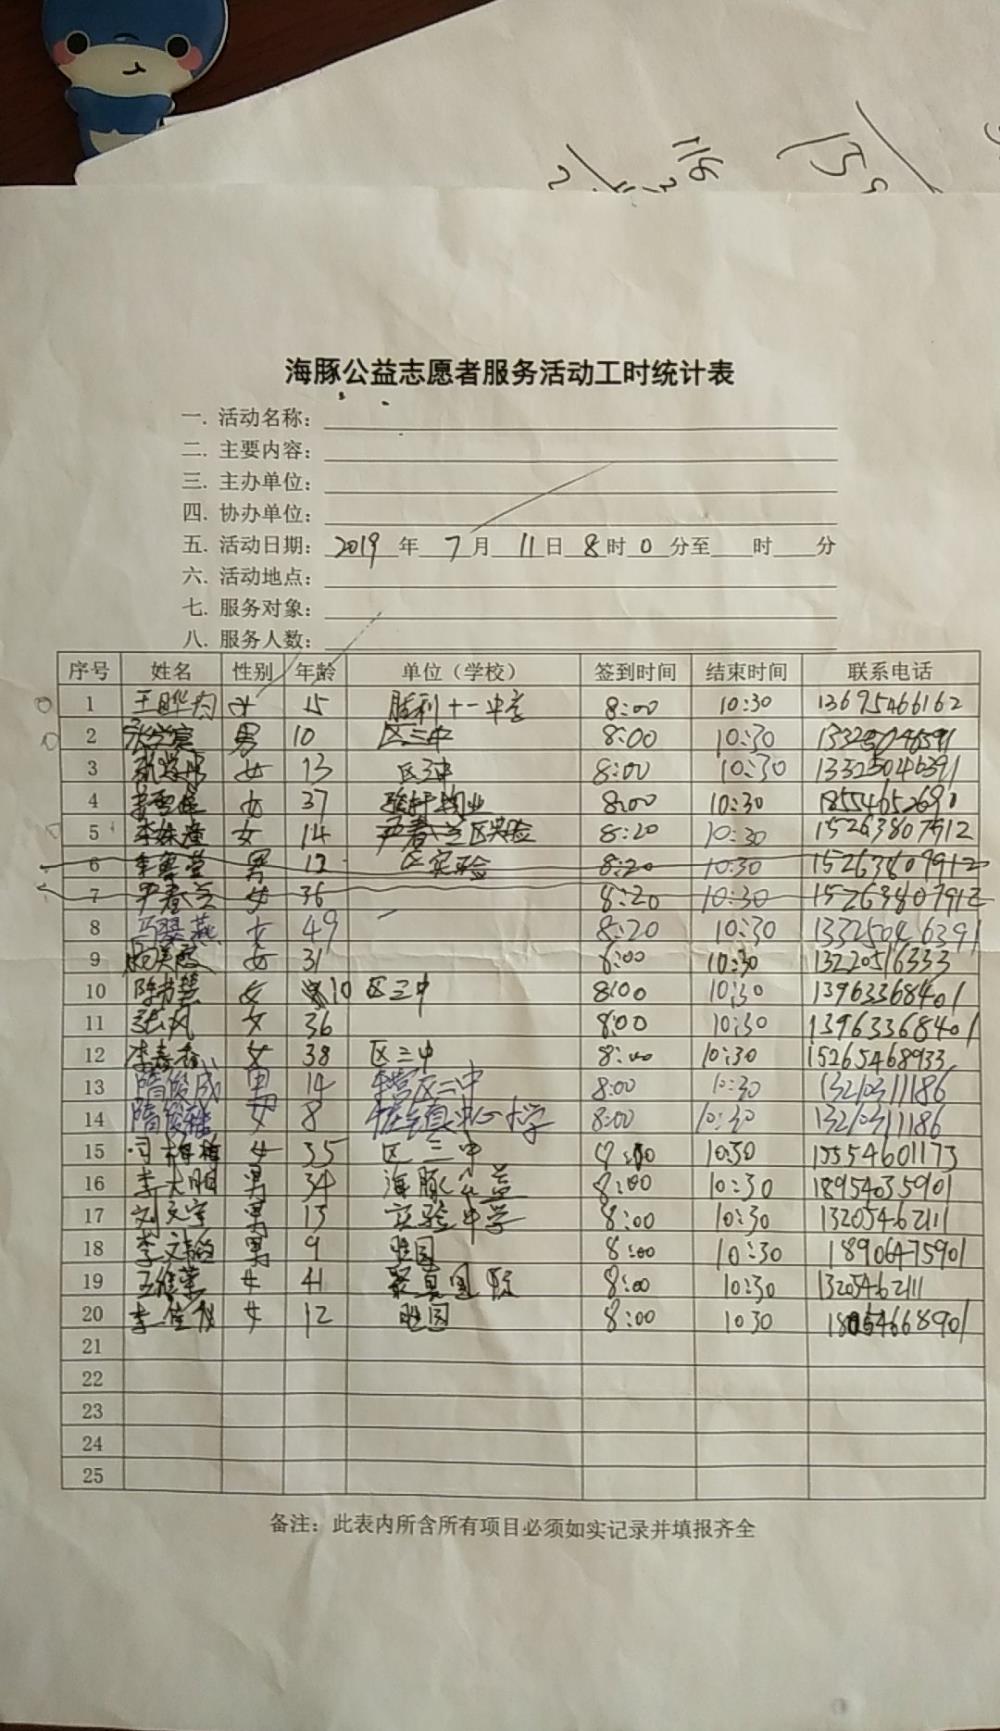 159
116
海豚公益志愿者服务活动工时统计表
一. 活动名称:
二. 主要内容:
三. 主办单位:
四. 协办单位:
五. 活动日期: 2019 年 7 月 11 日 8 时 0 分至 时 分
六. 活动地点:
七. 服务对象:
八. 服务人数:
序号 姓名 性别 年龄 单位（学校） 签到时间 结束时间 联系电话
1 王晔 女 15 胜利十一中学 8:00 10:30 13695466162
2 男 10 区三中 8:00 10:30
3 女 13 区三中 8:00 10:30 13325046391
4 女 37 物业 8:00 10:30 18554652690
5 李姝滢 女 14 区实验 8:20 10:30 15263807912
6 男 12 区实验 8:20 10:30 15263807912
7 尹春兰 女 36 8:20 10:30 15263807912
8 马翠燕 女 49 8:20 10:30 13325046391
9 女 31 8:00 10:30 13220516333
10 女 10 区三中 8:00 10:30 13963368401
11 张风 女 36 8:00 10:30 13963368401
12 李春香 女 38 区三中 8:00 10:30 15265468933
13 隋俊成 男 14 区二中 8:00 10:30 13210311186
14 隋俊 女 8 镇中心小学 8:00 10:30 13210311186
15 女 35 区三中 10:30 15554601173
16 李大鹏 男 34 海豚公益 8:00 10:30 18954035901
17 刘文宇 男 13 实验中学 8:00 10:30 13205462111
18 李文韬 男 9 胜园 8:00 10:30 18906475901
19 王 女 41 国际 8:00 10:30 13205462111
20 李佳 女 12 胜园 8:00 10 30 18054668901
21
22
23
24
25
备注：此表内所含所有项目必须如实记录并填报齐全